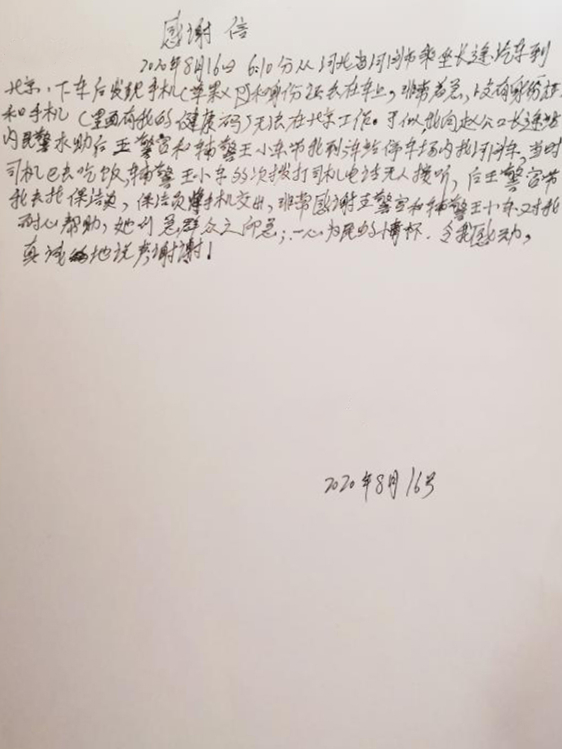 感谢信
2020年8月16日 6:10分从河北省河间市乘坐长途汽车到
北京,下车后发现手机(苹果X)和身份证丢在车上,非常着急,没有身份证
和手机(里面有我的健康码)无法在北京工作。于似,我向赵公口长途站
内民警求助后王警官和辅警王小东带我到汽车站停车场内找到车,当时
司机已去吃饭,辅警王小东多次拨打司机电话无人接听,后王警官带
我去找保洁员,保洁员将手机交出,非常感谢王警官和辅警王小东对我
耐心帮助,急群众之所急,一心为民的情怀.令我感动,
真诚的地说声谢谢!
2020年8月16号